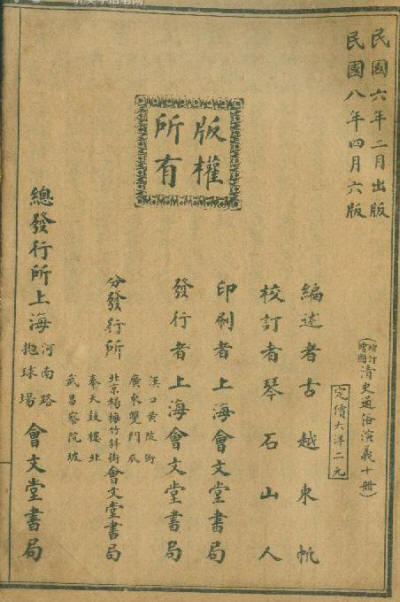 民國六年二月出版
民國八年四月六版
增訂繪圖清史通俗演義十冊
定價大洋二元
版權所有
編述者古越東帆
校訂者琴石山人
印刷者上海會文堂書局
發行者上海會文堂書局
分發行所
漢口黄陂街
廣東雙門底
北京楊梅竹斜街
奉天鼓樓北
武昌察院坡
會文堂書局
總發行所上海
河南路
抛球場
會文堂書局